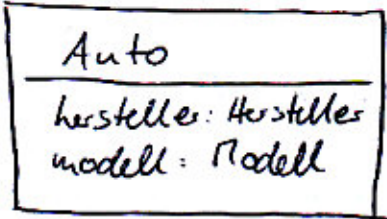 Auto
hersteller: Hersteller
modell: Modell